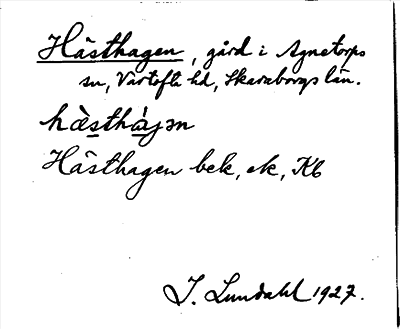 Hästhagen, gård i Agnetorps
sn, Vartofta hd, Skaraborgs län.
hὰsthàjən
Hästhagen bek, ek, Kb
I. Lundahl 1927.